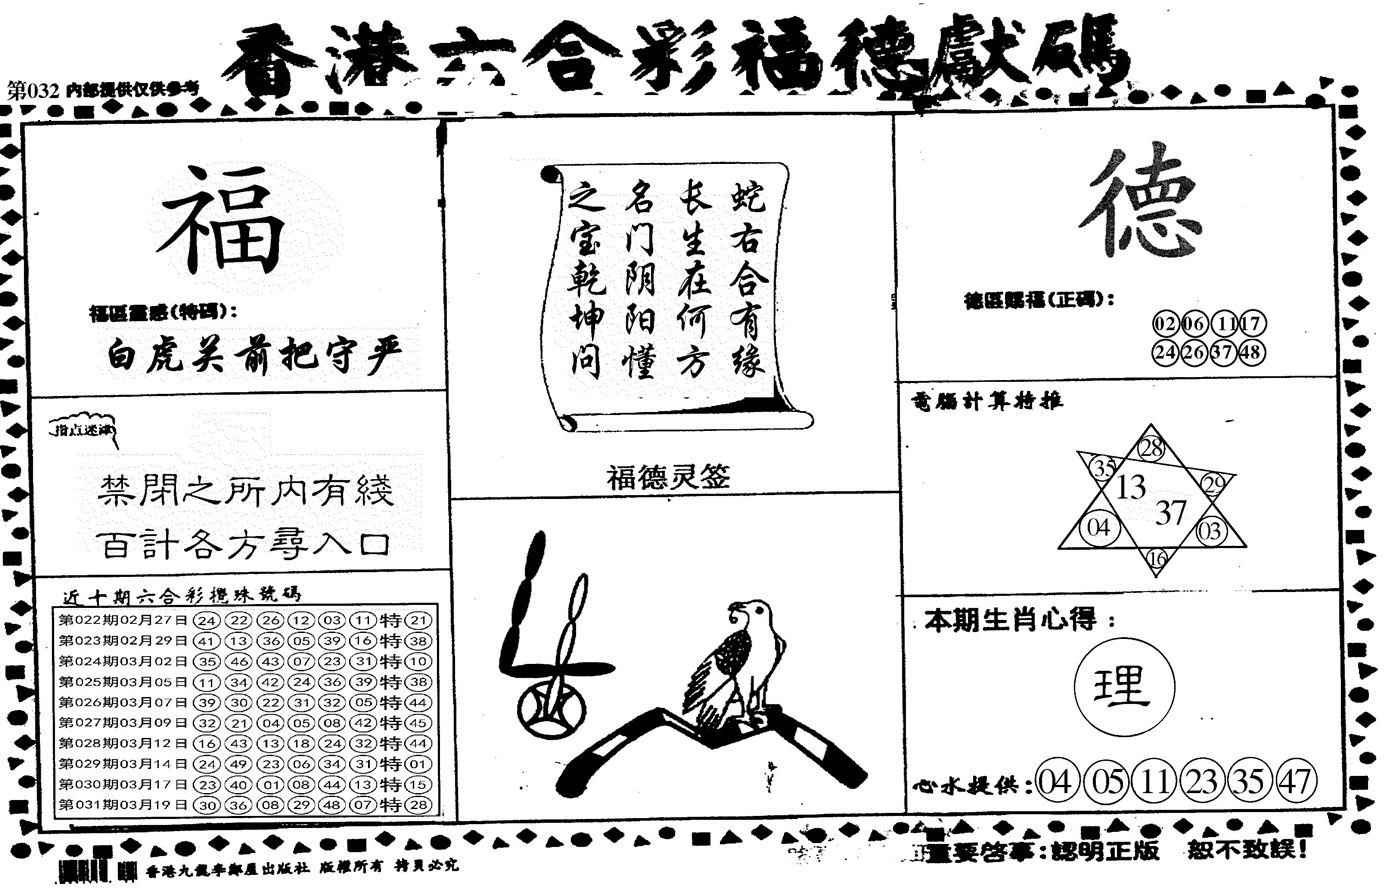 香港六合彩福德獻碼
第032 内部提供仅供参考
福
福區靈感(特碼):
白虎关前把守严
指点迷津
禁閉之所内有綫
百計各方尋入口
近十期六合彩攪珠號碼
第022期02月27日 24 22 26 12 03 11 特 21
第023期02月29日 41 13 36 05 39 16 特 38
第024期03月02日 35 46 43 07 23 31 特 10
第025期03月05日 11 34 42 24 36 39 特 38
第026期03月07日 39 30 22 31 32 05 特 44
第027期03月09日 32 21 04 05 08 42 特 45
第028期03月12日 16 43 13 18 24 32 特 44
第029期03月14日 24 49 23 06 34 31 特 01
第030期03月17日 23 40 01 08 44 13 特 15
第031期03月19日 30 36 08 29 48 07 特 28
蛇右合有缘
长生在何方
名门阴阳懂
之宝乾坤问
福德灵签
德
德區賜福(正碼):
02 06 11 17
24 26 37 48
電腦計算特推
28
35
29
13
37
04
03
16
本期生肖心得:
理
心水提供: 04 05 11 23 35 47
香港九龍李鄭屋出版社 版權所有 拷貝必究
重要啓事:認明正版 恕不致誤!